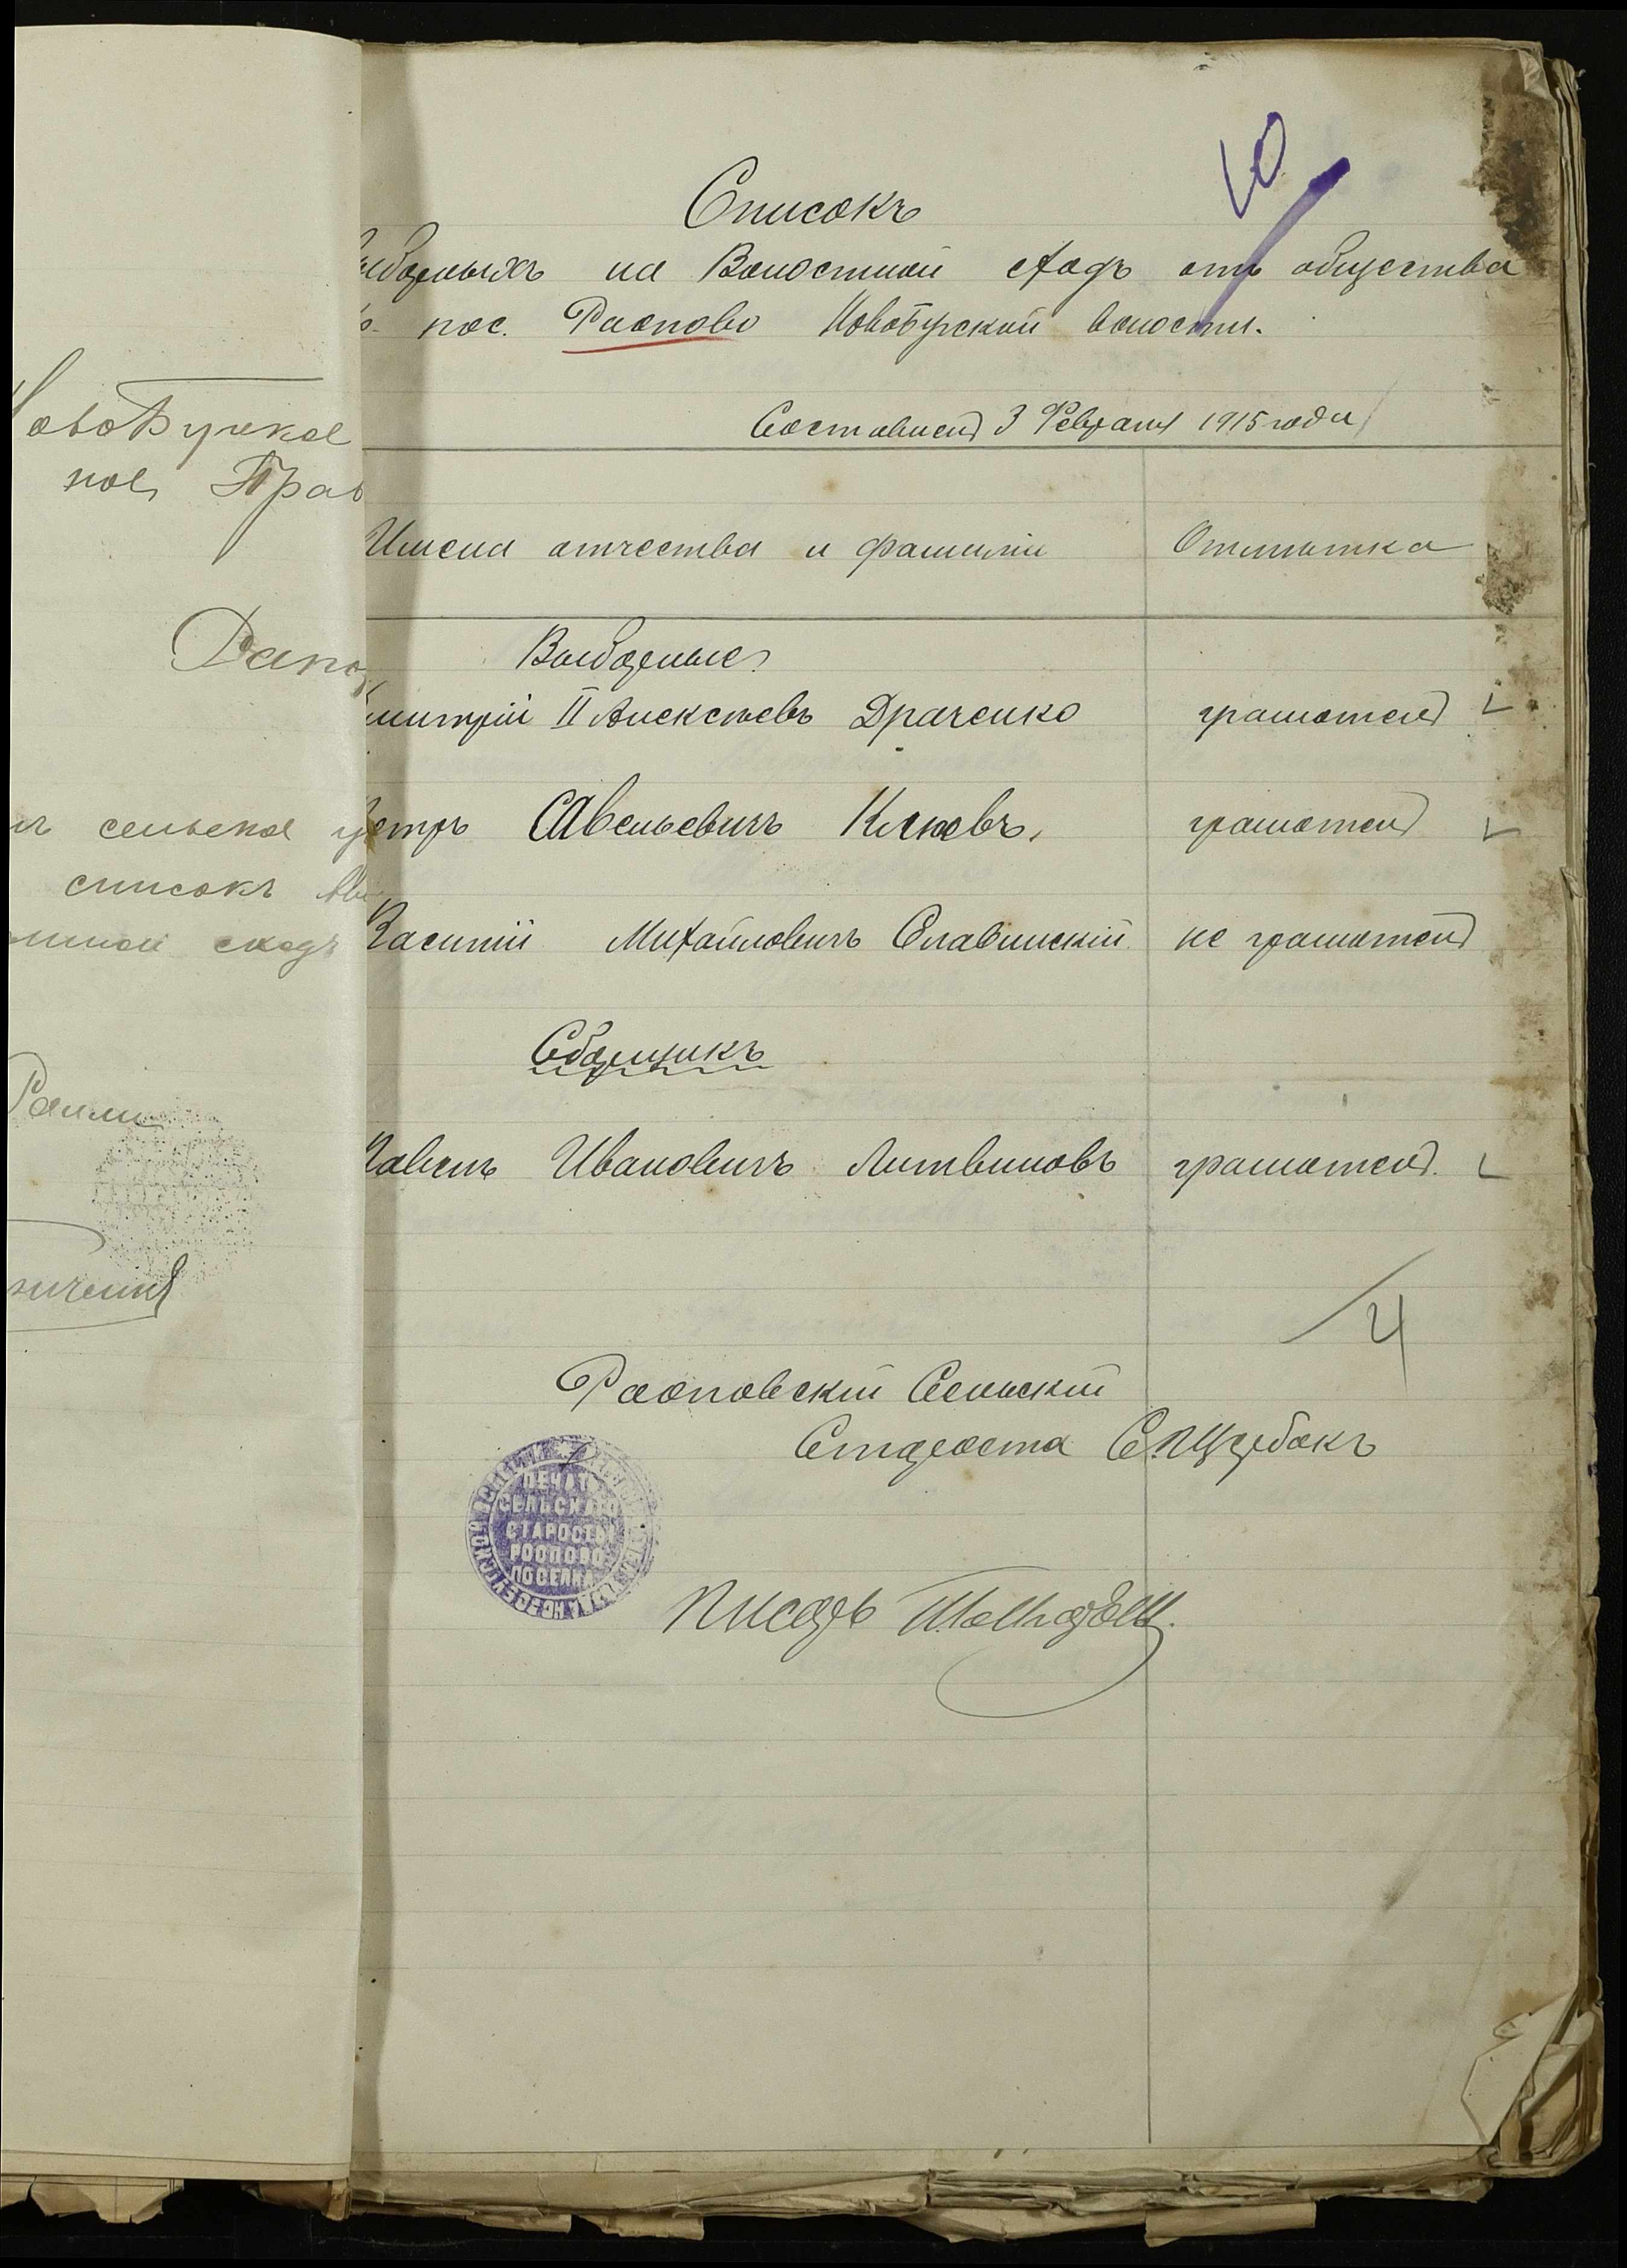 10
Списокъ
выборныхъ на Волостной сходъ отъ общества
пос. Распово Новобугской волости.
Составленъ 3 Февраля 1915 года
Имена отчества и фамиліи Отмѣтка
Выборные
Дмитрій II Алексѣевъ Драченко грамотенъ
Петръ Савельевичъ Клюевъ. грамотенъ
Василій Михайловичъ Славинскій не грамотенъ
Сборщикъ
Павелъ Ивановичъ Литвиновъ грамотенъ.
4
Располовскій Сельскій
Староста С. Щербакъ
ПЕЧАТЬ
СЕЛЬСКАГО
СТАРОСТЫ
РОСПОВО
ПОСЕЛКА
Писарь
овоБугское
ное Прав
Рапо
сельское
списокъ
сходъ